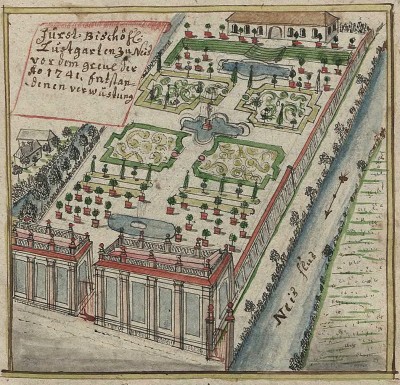 Fürst Bischöfl
Lustgarten zu Neis
vor dem gewe der
Ao 1741. Entstan-
denen verwüstung
Neis flus